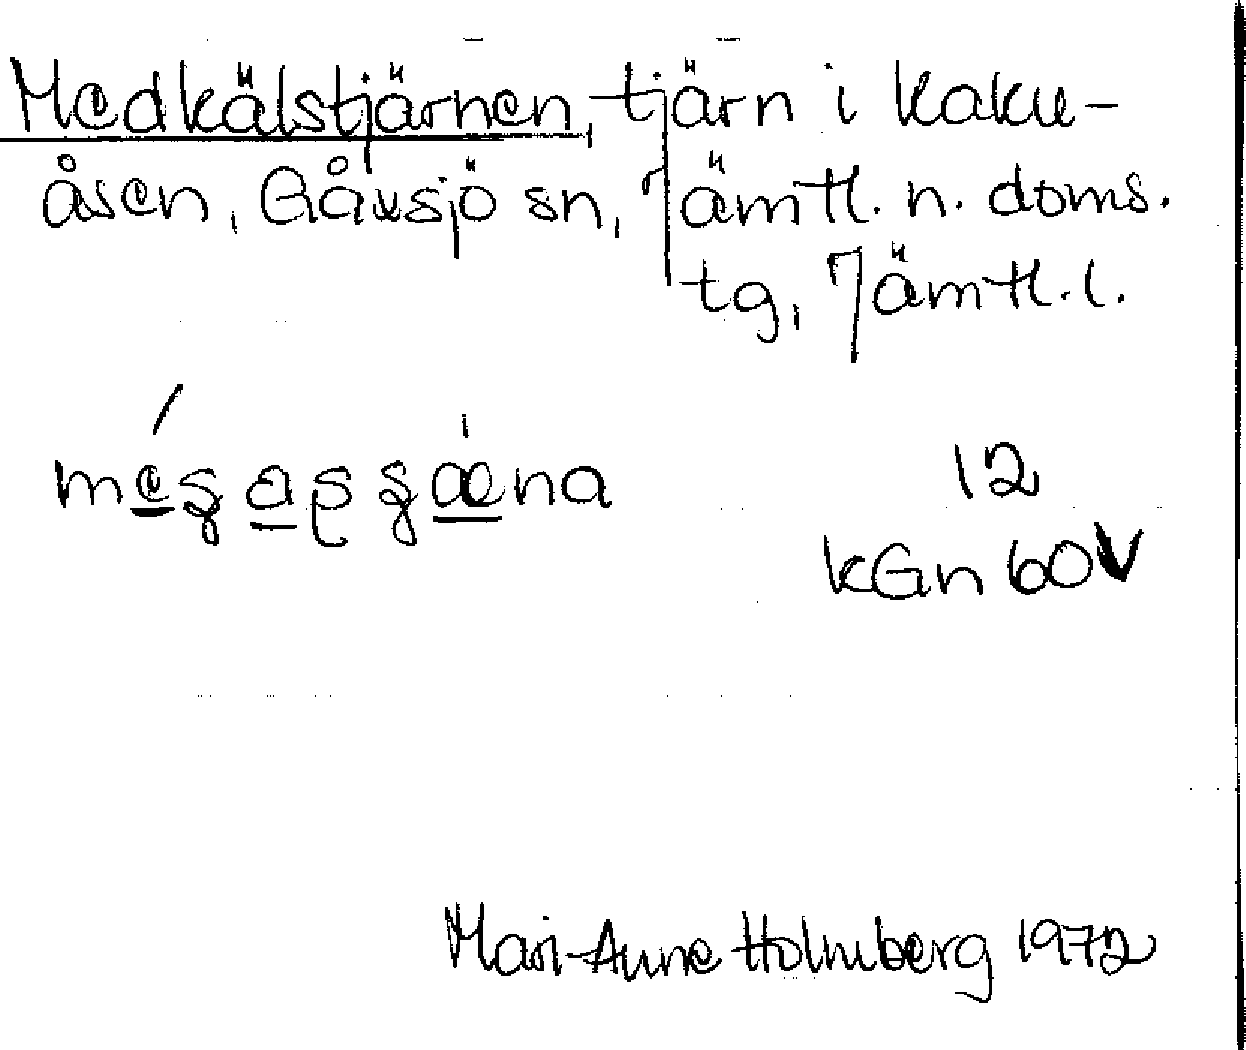 Medkälstjärnen, tjärn i Kaku-
åsen, Gåxsjö sn, Jämtl. n. doms.
tg, Jämtl. l.
12
KGn 60 V
Mari-Anne Holmberg 1972